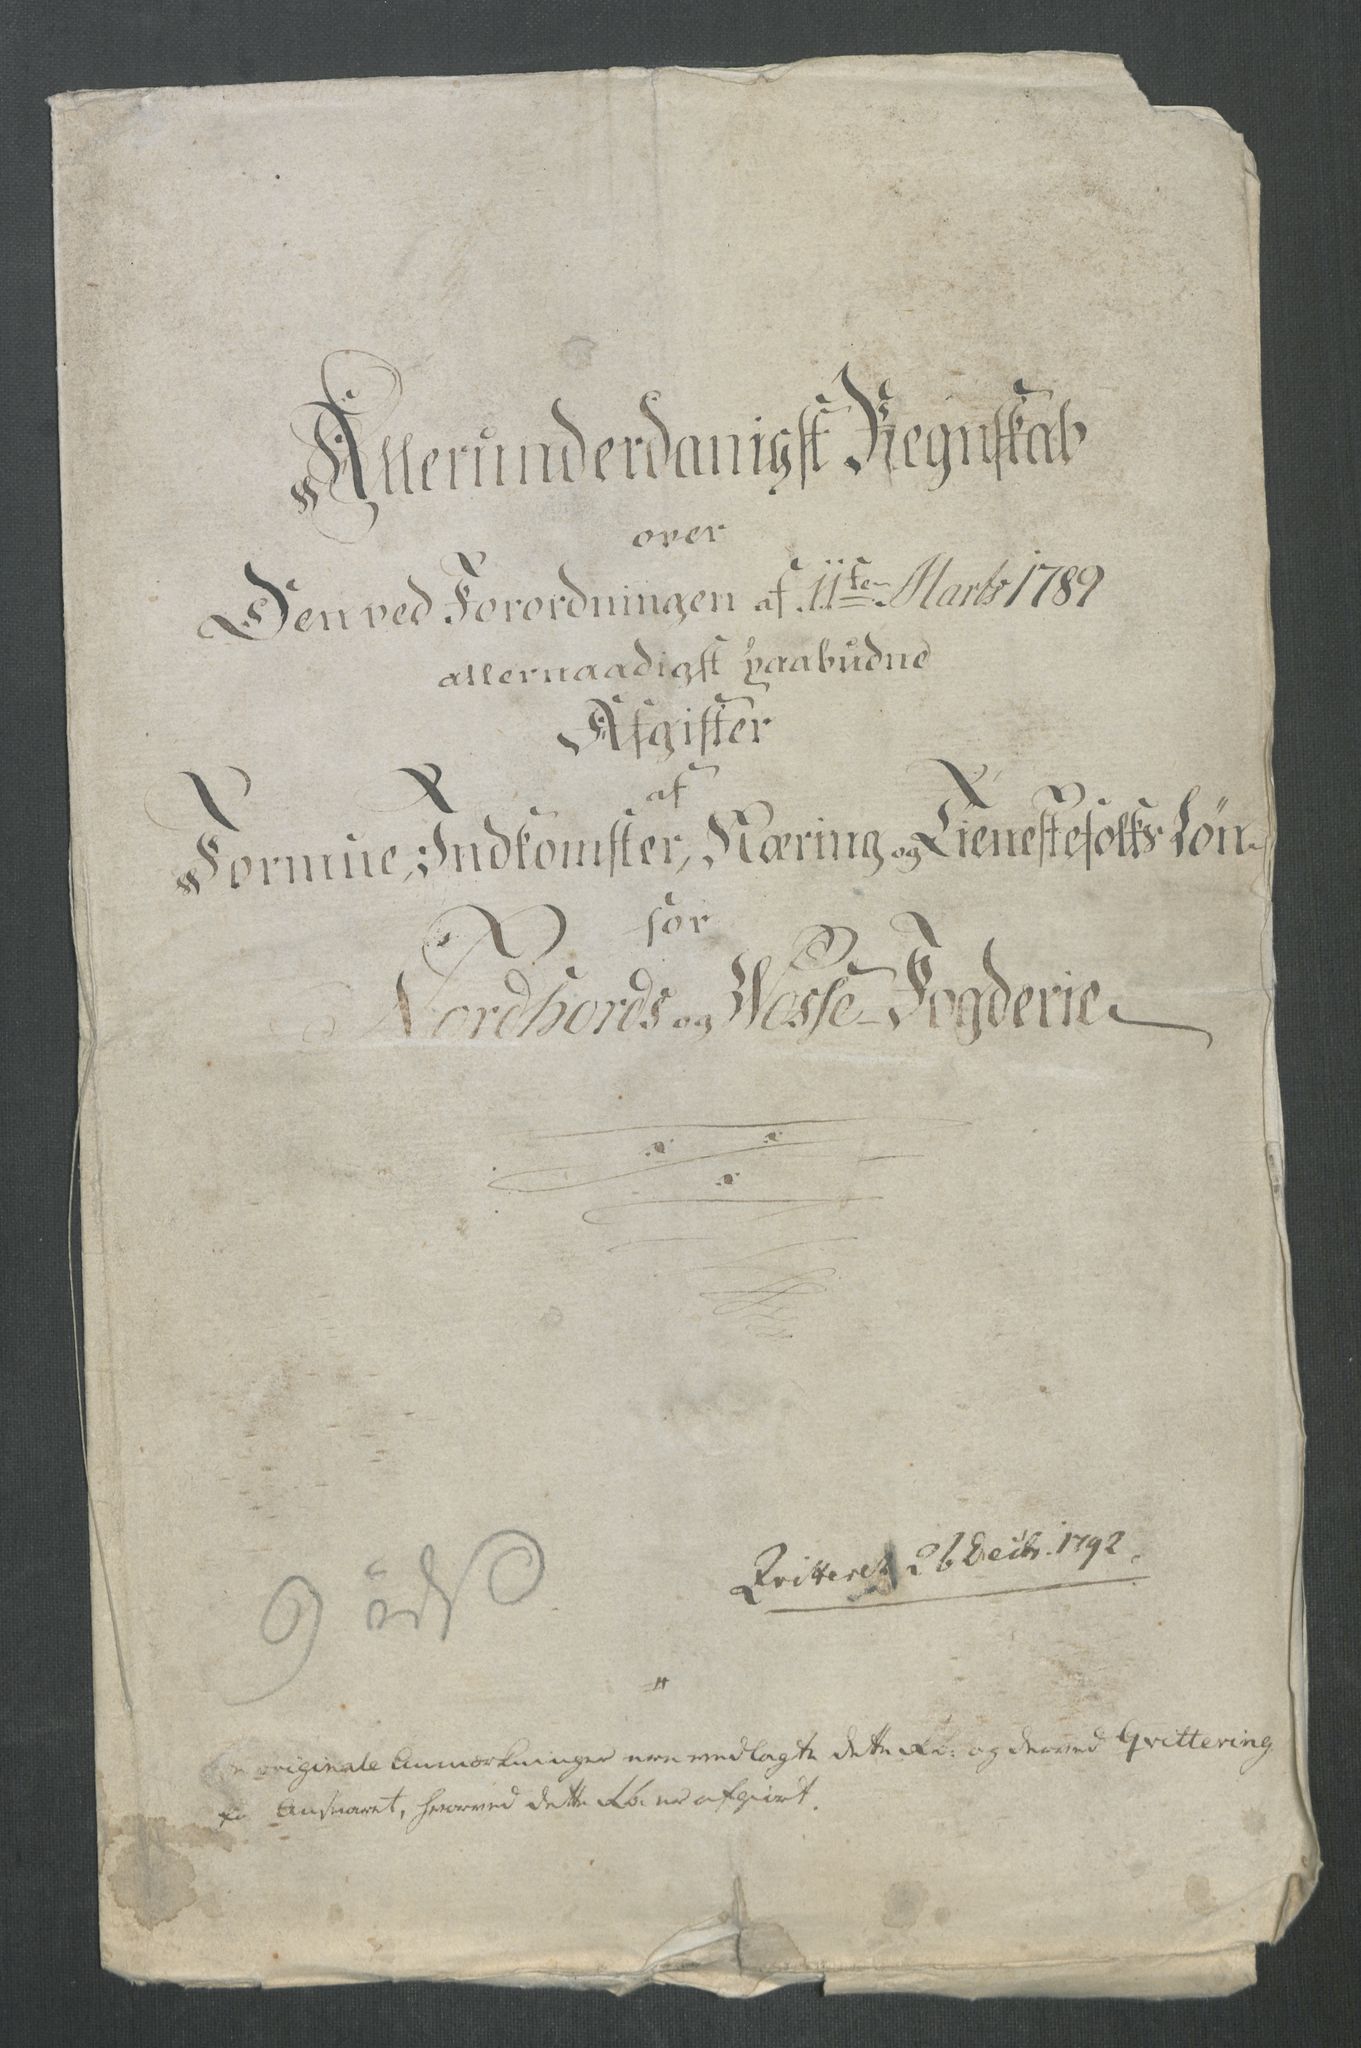 Allerunderdanigst Regnskab
over
Den ved Forordningen af 11ten Marts 1789
allernaadigst paabudne
Afgifter
af
Formue, Indkomster, Næring og Tienestefolks Løn
for
Nordhords og Wosse Fogderie
Qvitteret 26 Decbr. 1792.
originale Anmærkninger ere vedlagte dette Rb: og derved Qvittering
paa Ansvaret, hvorved dette Rb. er afgiort.